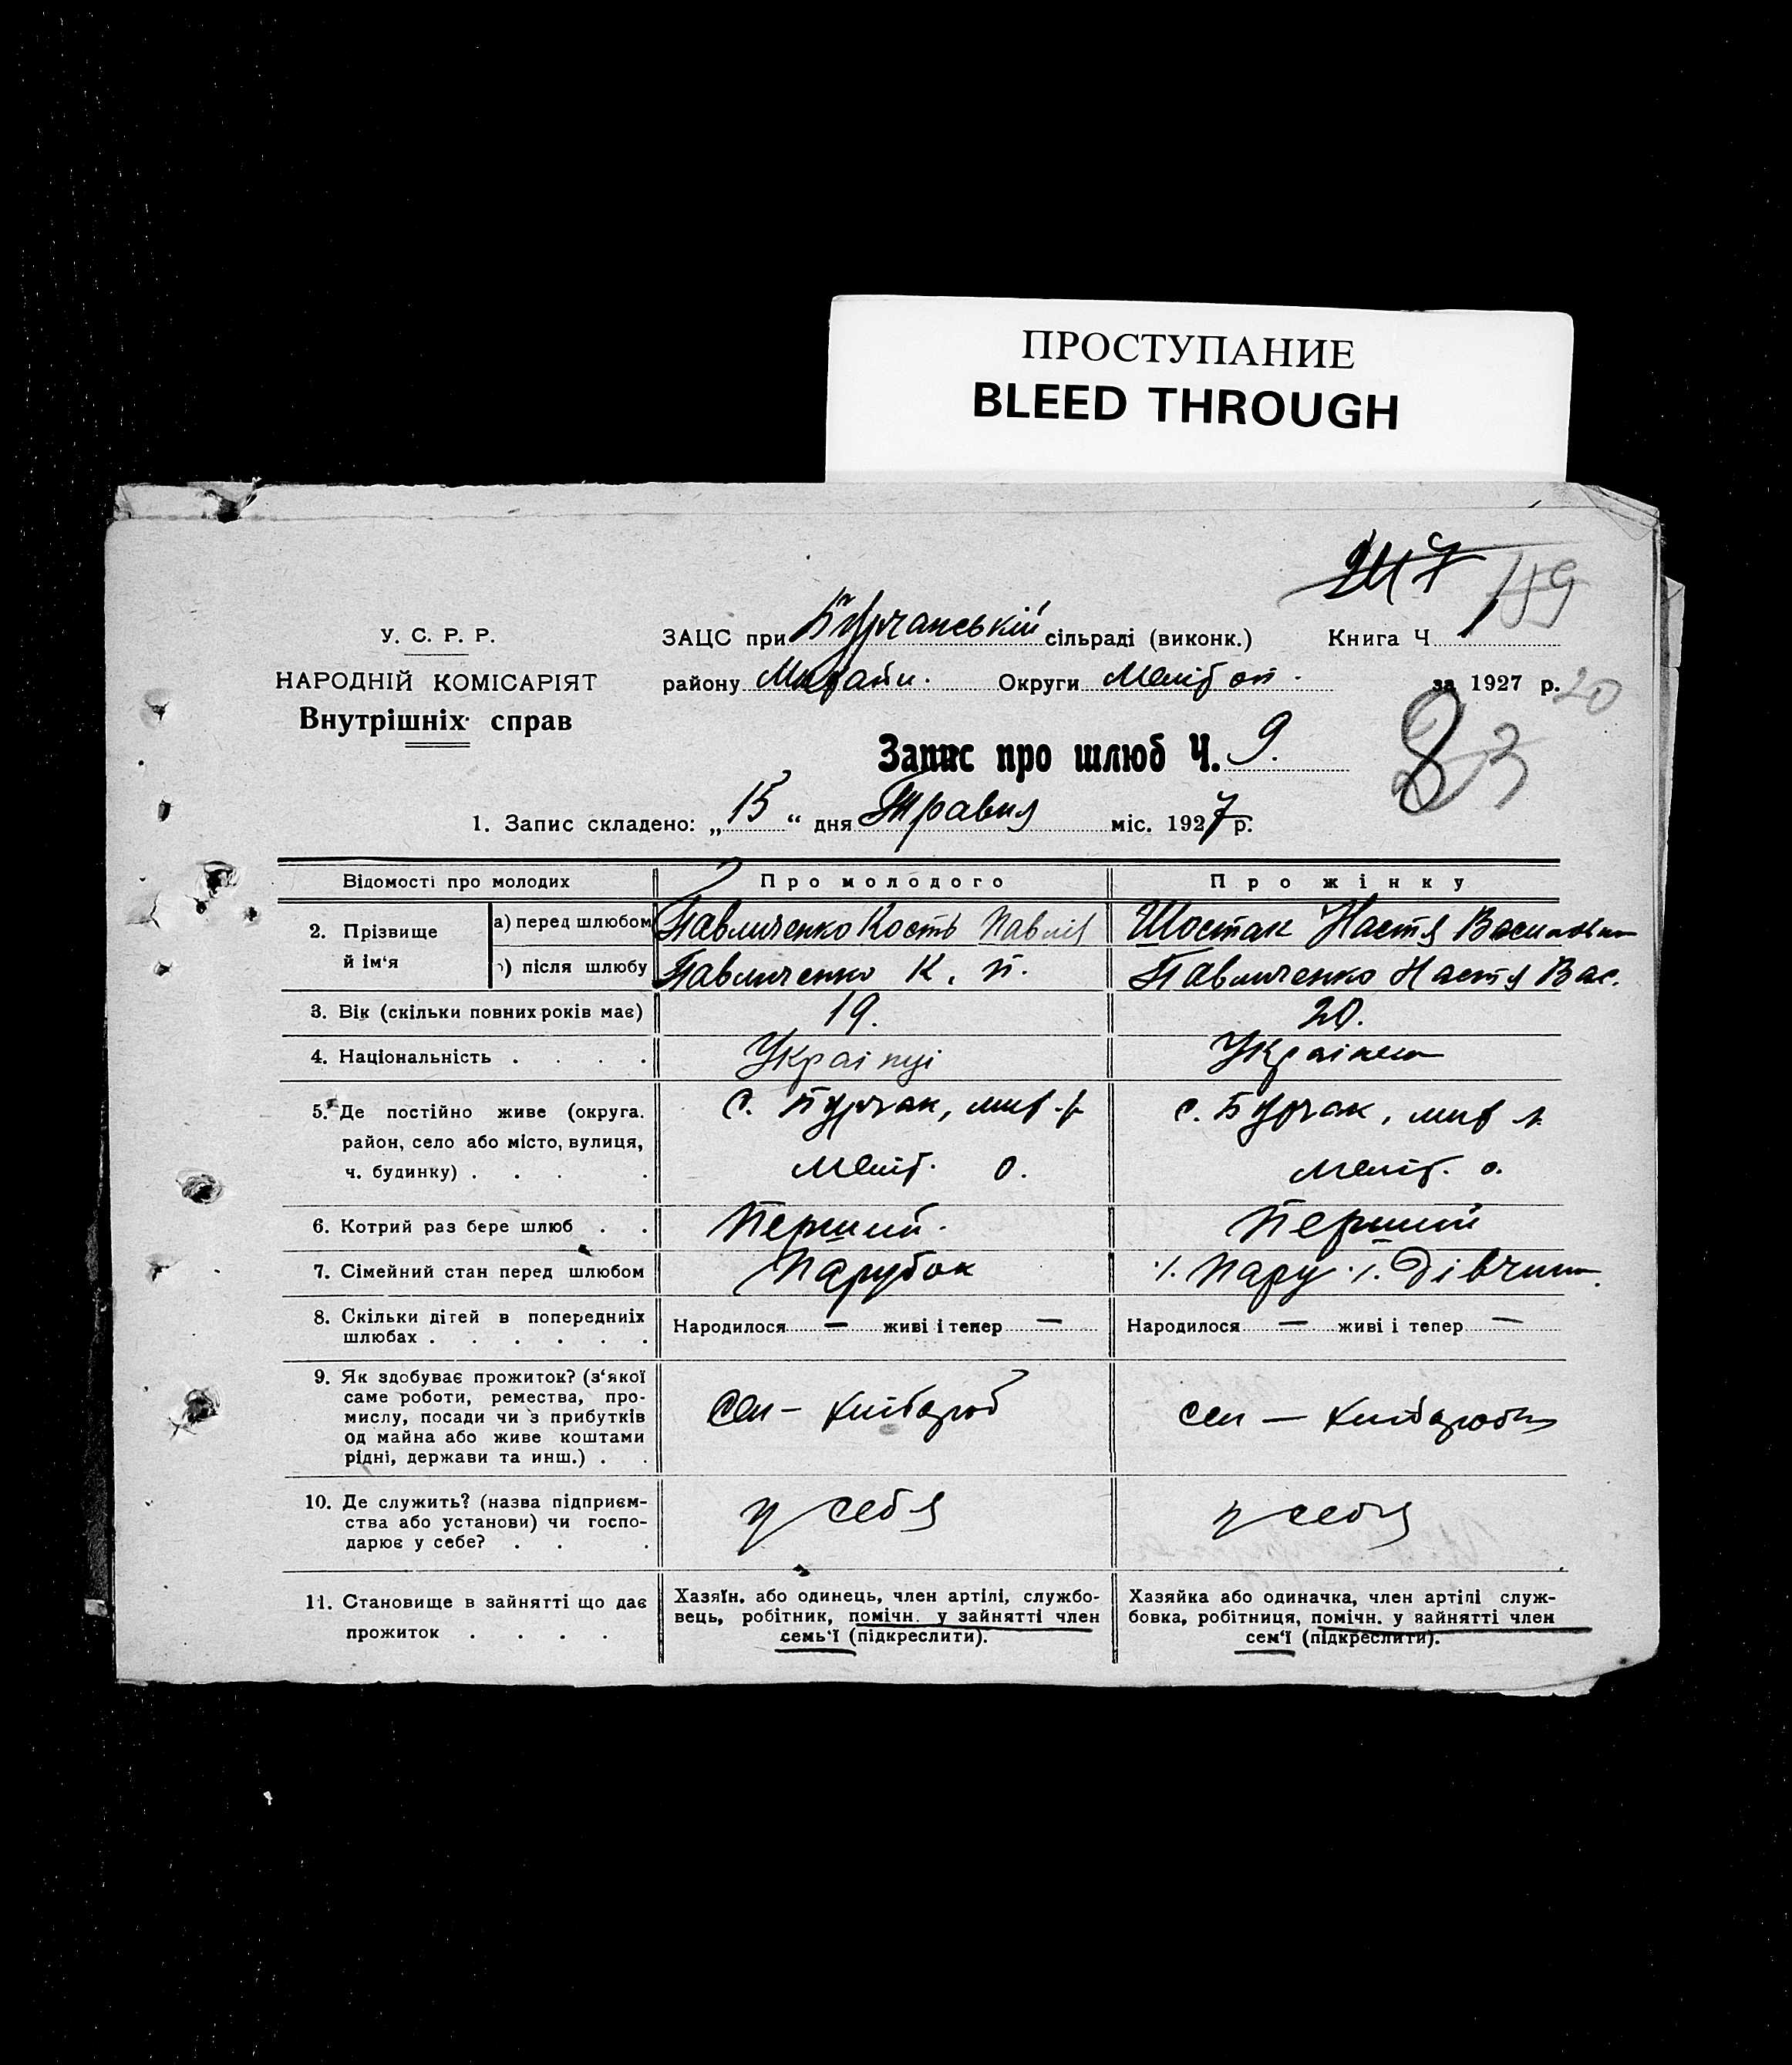 ПРОСТУПАНИЕ
BLEED THROUGH
247 159
У. С. Р. Р.
НАРОДНІЙ КОМІСАРІЯТ
Внутрішніх справ
ЗАЦС при Бурчанській сільраді (виконк.) Книга Ч.
району Михайл. Округи Мелітоп. за 1927 р.
20
83
Запис про шлюб Ч. 9.
1. Запис складено: „15“ дня Травня міс. 1927 р.
Відомості про молодих Про молодого Про жінку
2. Прізвище й ім‘я а) перед шлюбом Павличенко Кость Павлів Шостак Настя Василівна
б) після шлюбу Павличенко К. П. Павличенко Настя Вас.
3. Вік (скільки повних років має) 19. 20.
4. Національність . . . . Українці Українка
5. Де постійно живе (округа. с. Бурчак, мих. р. с. Бурчак, мих р.
район, село або місто, вулиця,
ч. будинку) . . . . Меліт. о. Меліт. о.
6. Котрий раз бере шлюб . . Перший. Перший
7. Сімейний стан перед шлюбом Парубок ٪ Пару ٪ Дівчина.
8. Скільки дітей в попередниіх Народилося — живі і тепер — Народилося — живі і тепер —
шлюбах . . . . . .
9. Як здобуває прожиток? (з‘якої
саме роботи, ремества, про-
мислу, посади чи з прибутків сел — хлібороб сел — хліборобка
од майна або живе коштами
рідні, держави та инш.) . .
10. Де служить? (назва підприєм-
ства або установи) чи госпо- у себя у себя
дарює у себе? . . .
11. Становище в зайнятті що дає
прожиток . . . .
Хазяїн, або одинець, член артілі, службо-
вець, робітник, помічн. у зайнятті член
семь‘ї (підкреслити).
Хазяйка або одиначка, член артілі служ-
бовка, робітниця, помічн. у зайнятті член
сем‘ї (підкреслити).